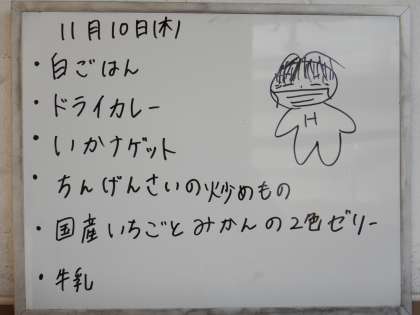 11月10日(木)
・白ごはん
・ドライカレー
・いかナゲット
・ちんげんさいの炒めもの
・国産いちごとみかんの2色ゼリー
・牛乳
H